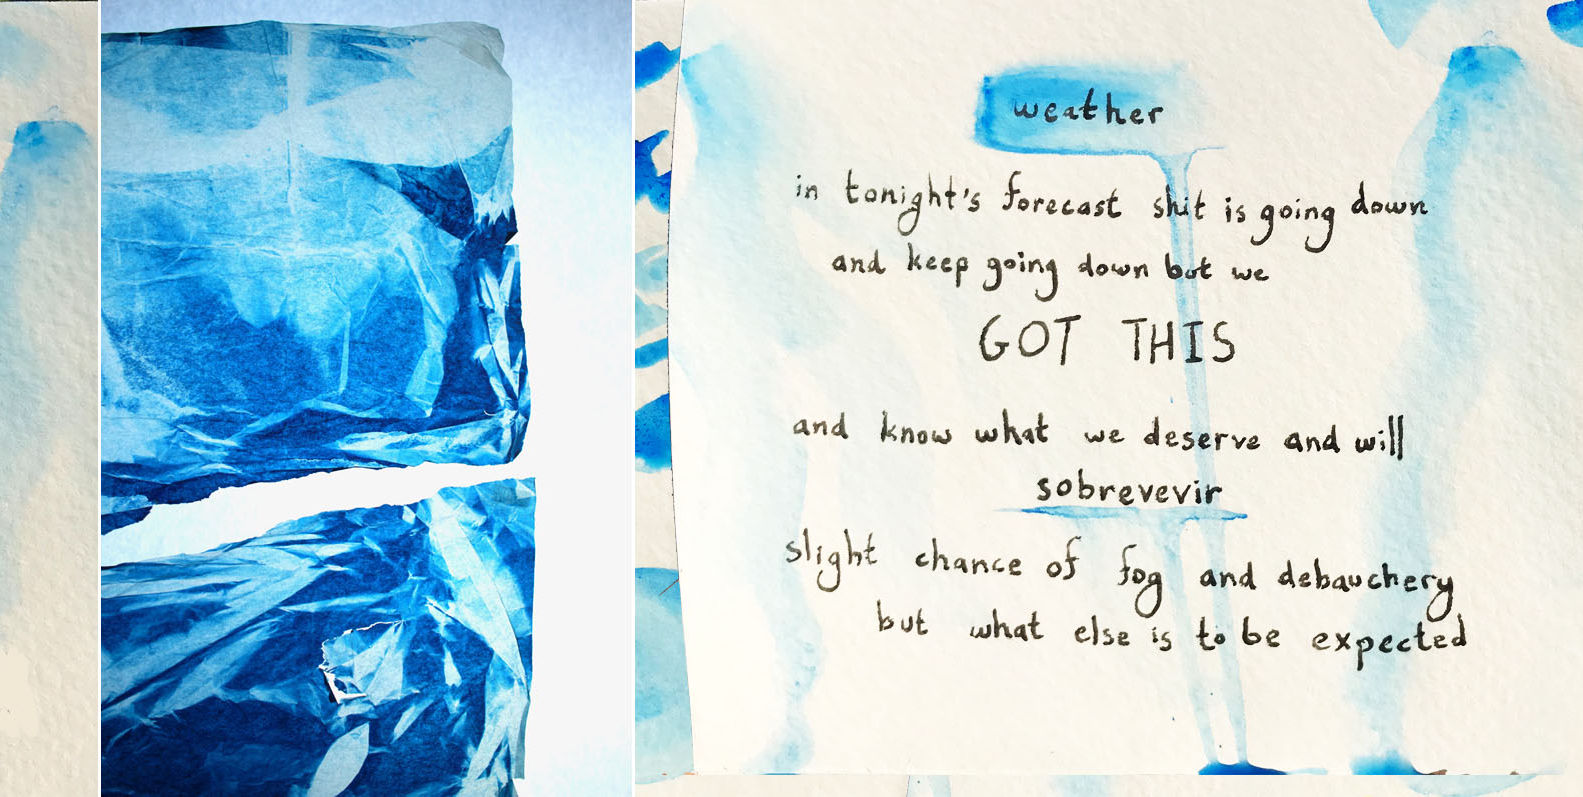 weather
in tonight's forecast shit is going down
and keep going down but we
GOT THIS
and know what we deserve and will
sobrevevir
slight chance of fog and debauchery
but what else is to be expected